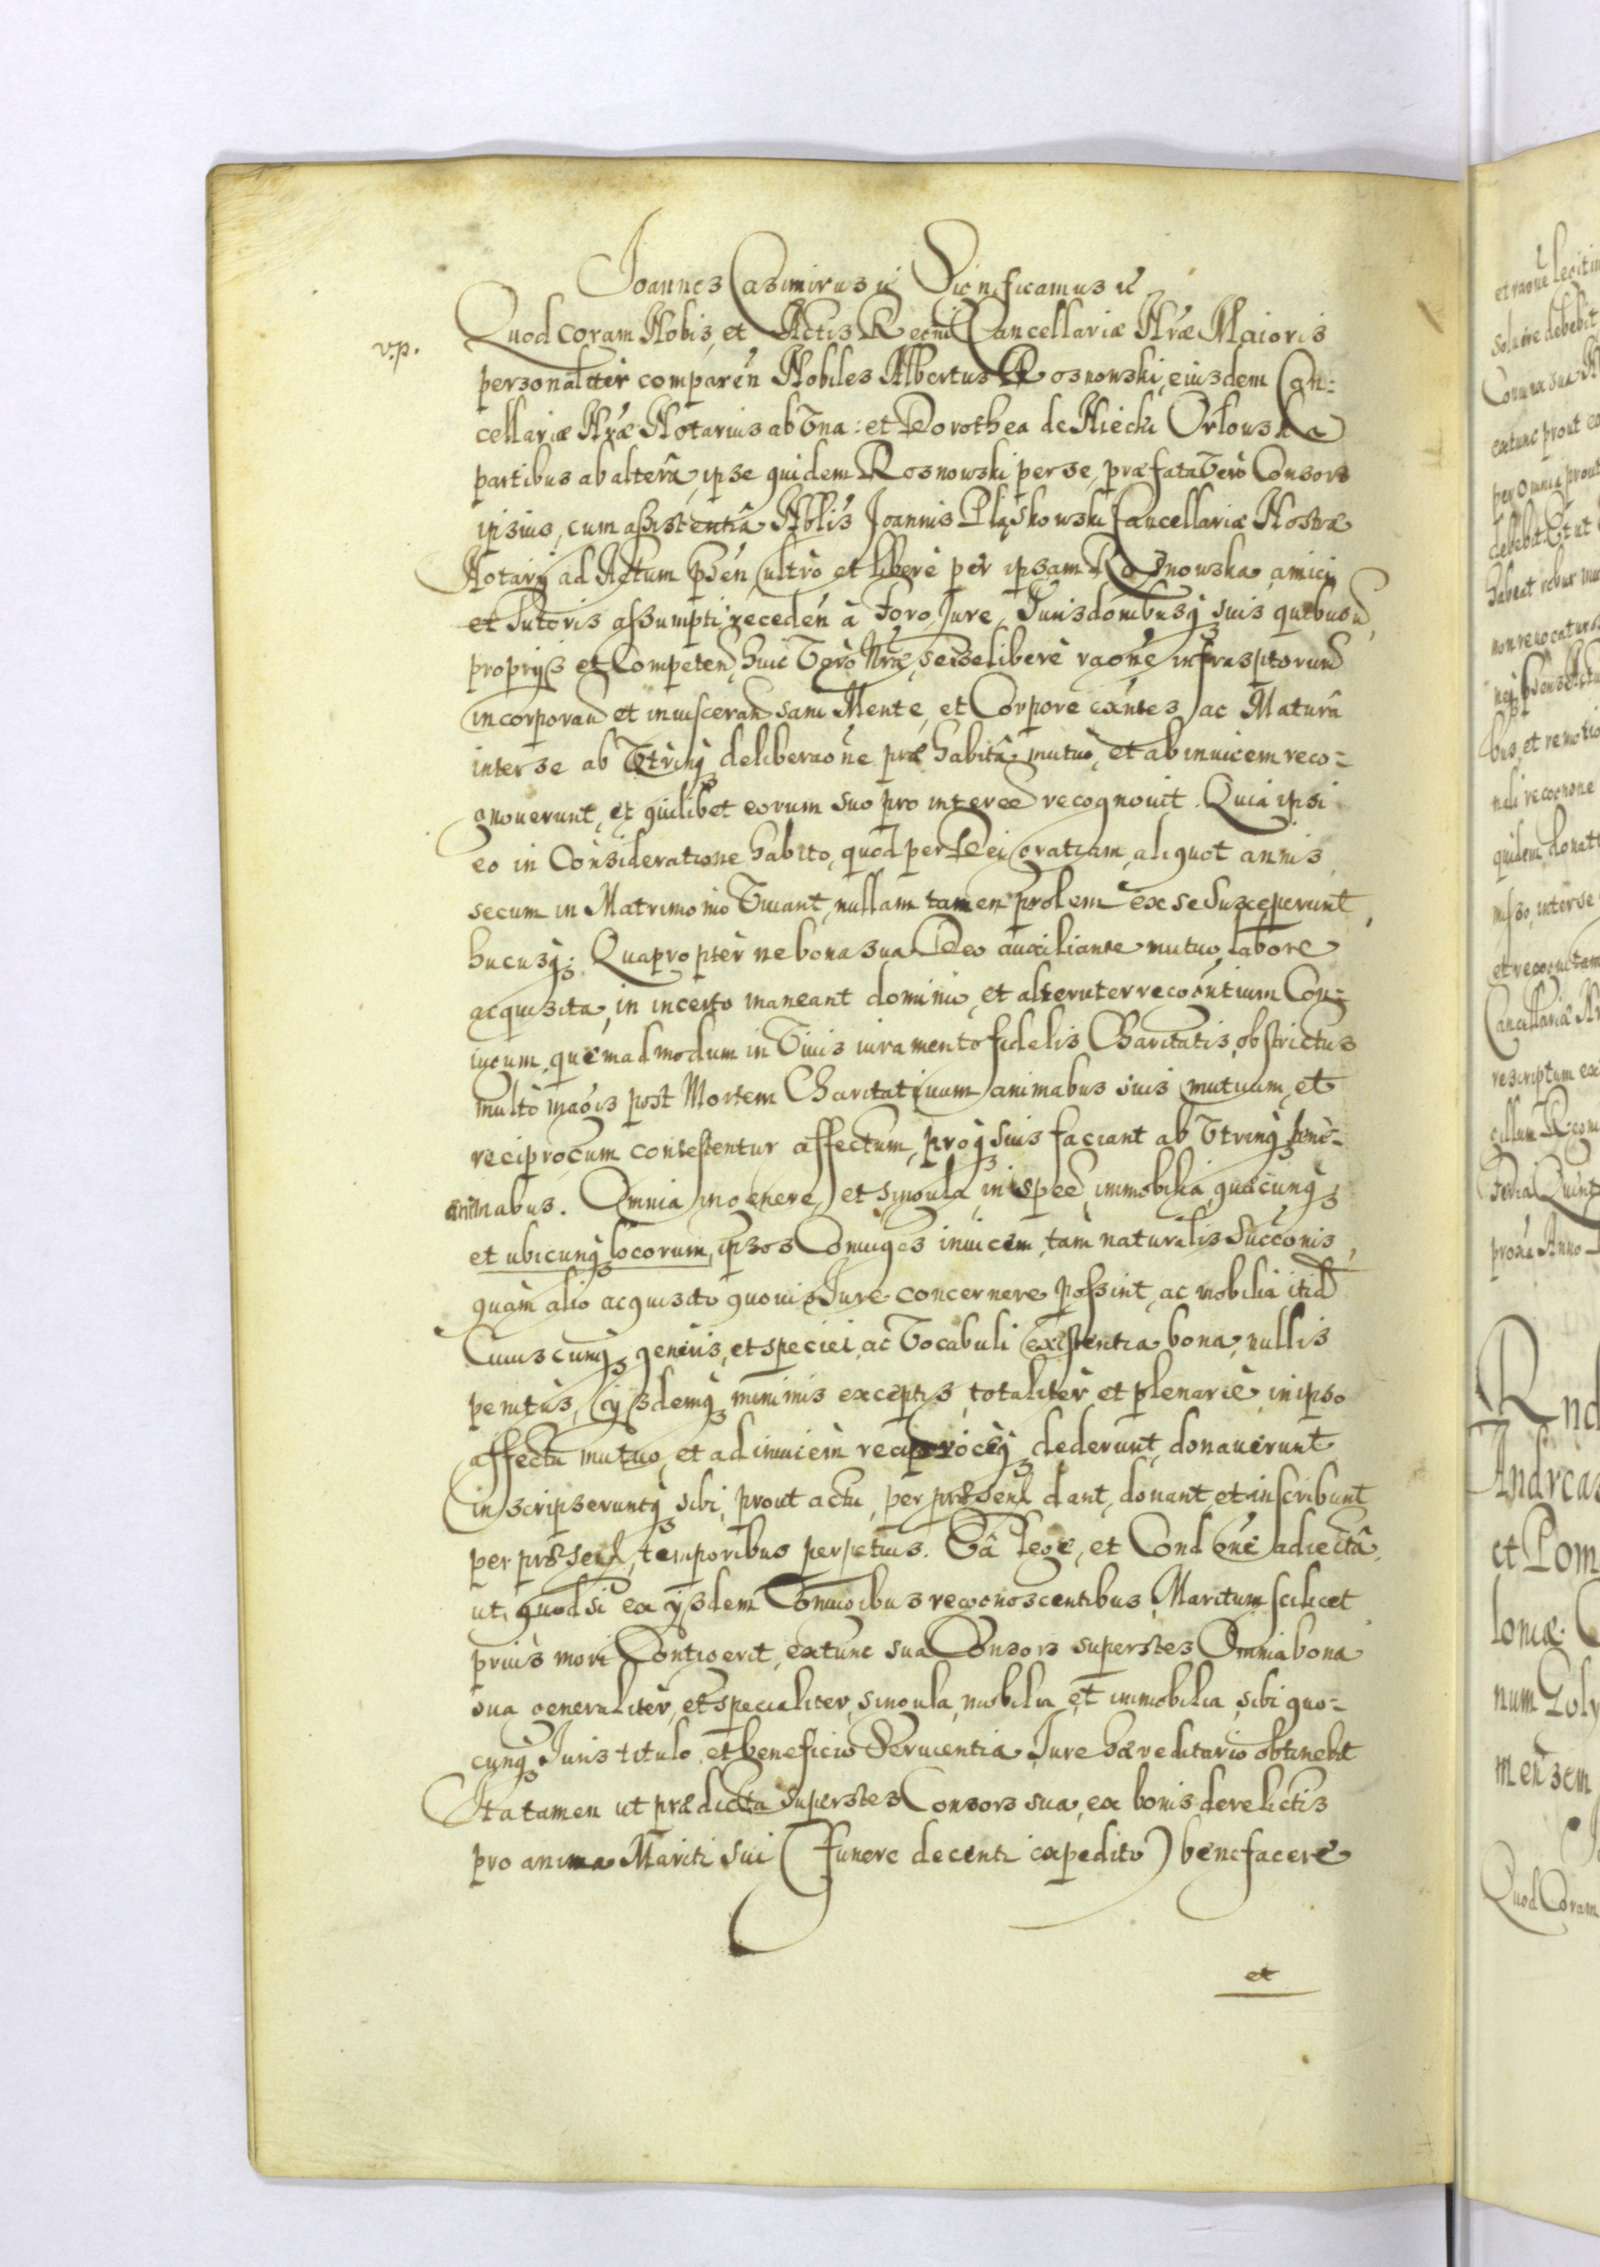 Joannes Casimirus etc Significamus etc
v.p.
Quod coram Nobis, et Actis Regni Cancellariæ Nræ Maioris
personaliter comparen Nobiles Albertus Rosnowski, eiusdem Can:
cellariæ Nræ Notarius ab Vna: et Dorothea de Niecki Orlowska
partibus ab alterâ, ipse quidem Rosnowski per se, præfata Verò Consors
ipsius, cum assistentiâ Nblis Joannis Pląskowski Cancellariæ Nostræ
Notarij ad Actum pñsen ultrò et liberè per ipsam Rosnowska amici
et tutoris assumpti, receden à Foro, Jure, Jurisdonibusq suis quibusu
proprijs et Competen, huic Verò Nræ, sese liberè raõne infrasptorum
incorporan et inuisceran sani Mente, et Corpore exñtes, ac Maturâ
inter se ab Vtrinq deliberaõne præhabitâ mutuò, et ab inuicem reco-
gnouerunt, et quilibet eorum suo pro interee recognouit. Quia ipsi
eo in Consideratione habito, quod per Dei gratiam, aliquot annis
secum in Matrimonio Viuant, nullam tamen prolem ex se Susceperunt
hucusq; Quapropter ne bona sua Deo auxiliante mutuo labore
acquisita, in incerto maneant dominio, et alteruter recogñtium Con-
iugum, quemadmodum in Viuis iuramento fidelis Charitatis obstrictus
multò magis post Mortem Charitatiuum animabus suis mutuum, et
reciprocum contestentur affectum, proq suis faciant ab Vtrinq bene-
animabus. Omnia in genere, et singula, in spee, immobilia, quæcunq
et ubicunq locorum, ipsos Coniuges inuicem, tam naturalis Succonis,
quam alio acquisito quouis Jure concernere possint, ac mobilia itid
Cuiuscunq generis, et speciei, ac Vocabuli existentia bona, nullis
penitus, ijsdemq minimis exceptis, totaliter et plenariè, in ipso
affectu mutuo, et ad inuicem reciprocèq dederunt, donauerunt
inscripseruntq sibi, prout actu, per præsen dant, donant, et inscribunt
per præsen, temporibus perpetuis. Eâ lege, et Condõne adiectâ,
ut, quod si ex ijsdem Coniugibus recognoscentibus, Maritum scilicet
prius mori Contigerit, extunc sua Consors superstes Omnia bona
sua generaliter, et specialiter, singula, mobilia, et immobilia, sibi quo-
cunq Juris titulo, et beneficio Seruientia, Jure hæreditario obtinebit
Ita tamen ut prædicta superstes Consors sua, ex bonis derelictis
pro anima Mariti sui (Funere decenti expedito) benefacere
et